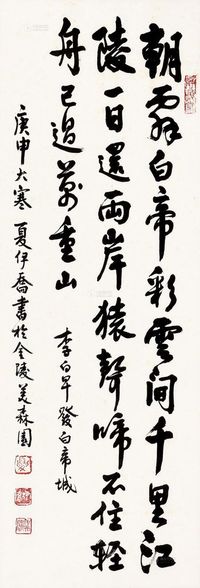 朝辭白帝彩雲間千里江
陵一日還兩岸猿聲啼不住輕
舟已過萬重山
李白早發白帝城
庚申大寒 夏伊喬書於金陵美森園